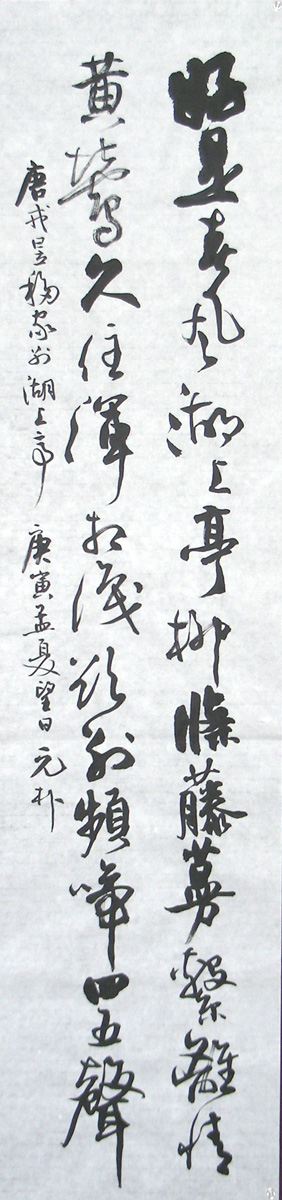 好是春风湖上亭柳條藤蔓繫離情
黄鶯久住渾相識欲别頻啼四五聲
唐戎昱移家别湖上亭 庚寅孟夏望日 元朴